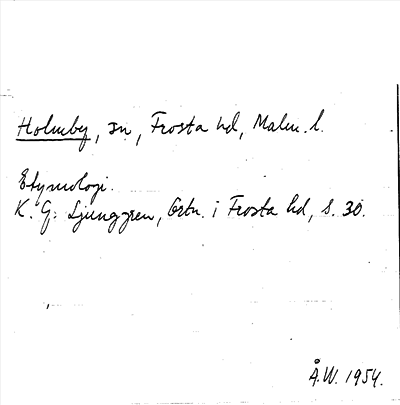 Holmby, sn, Frosta hd, Malm. l.
Etymologi.
K. G. Ljunggren, Ortn. i Frosta hd, s. 30.
Å.W. 1954.